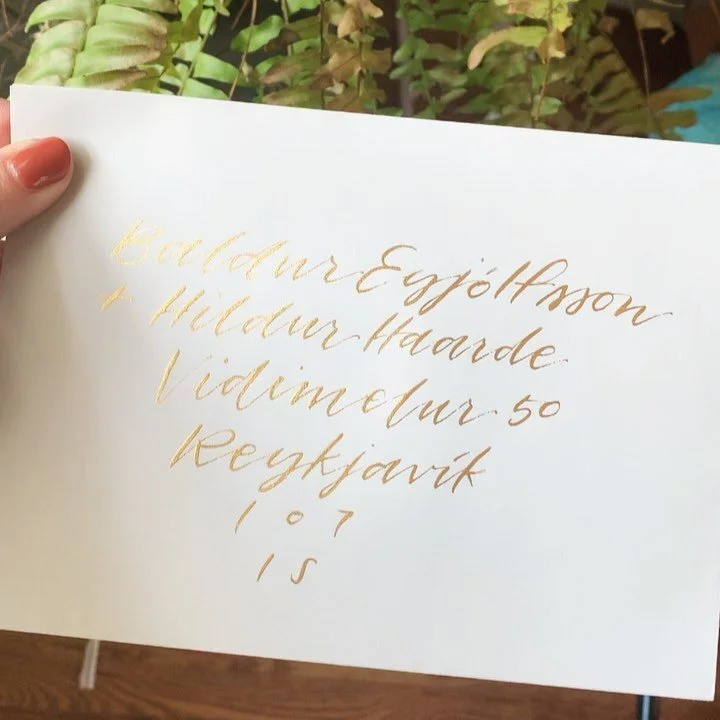 Baldur Eyjólfsson
+ Hildur Haarde
Vidimelur 50
Reykjavík
107
IS